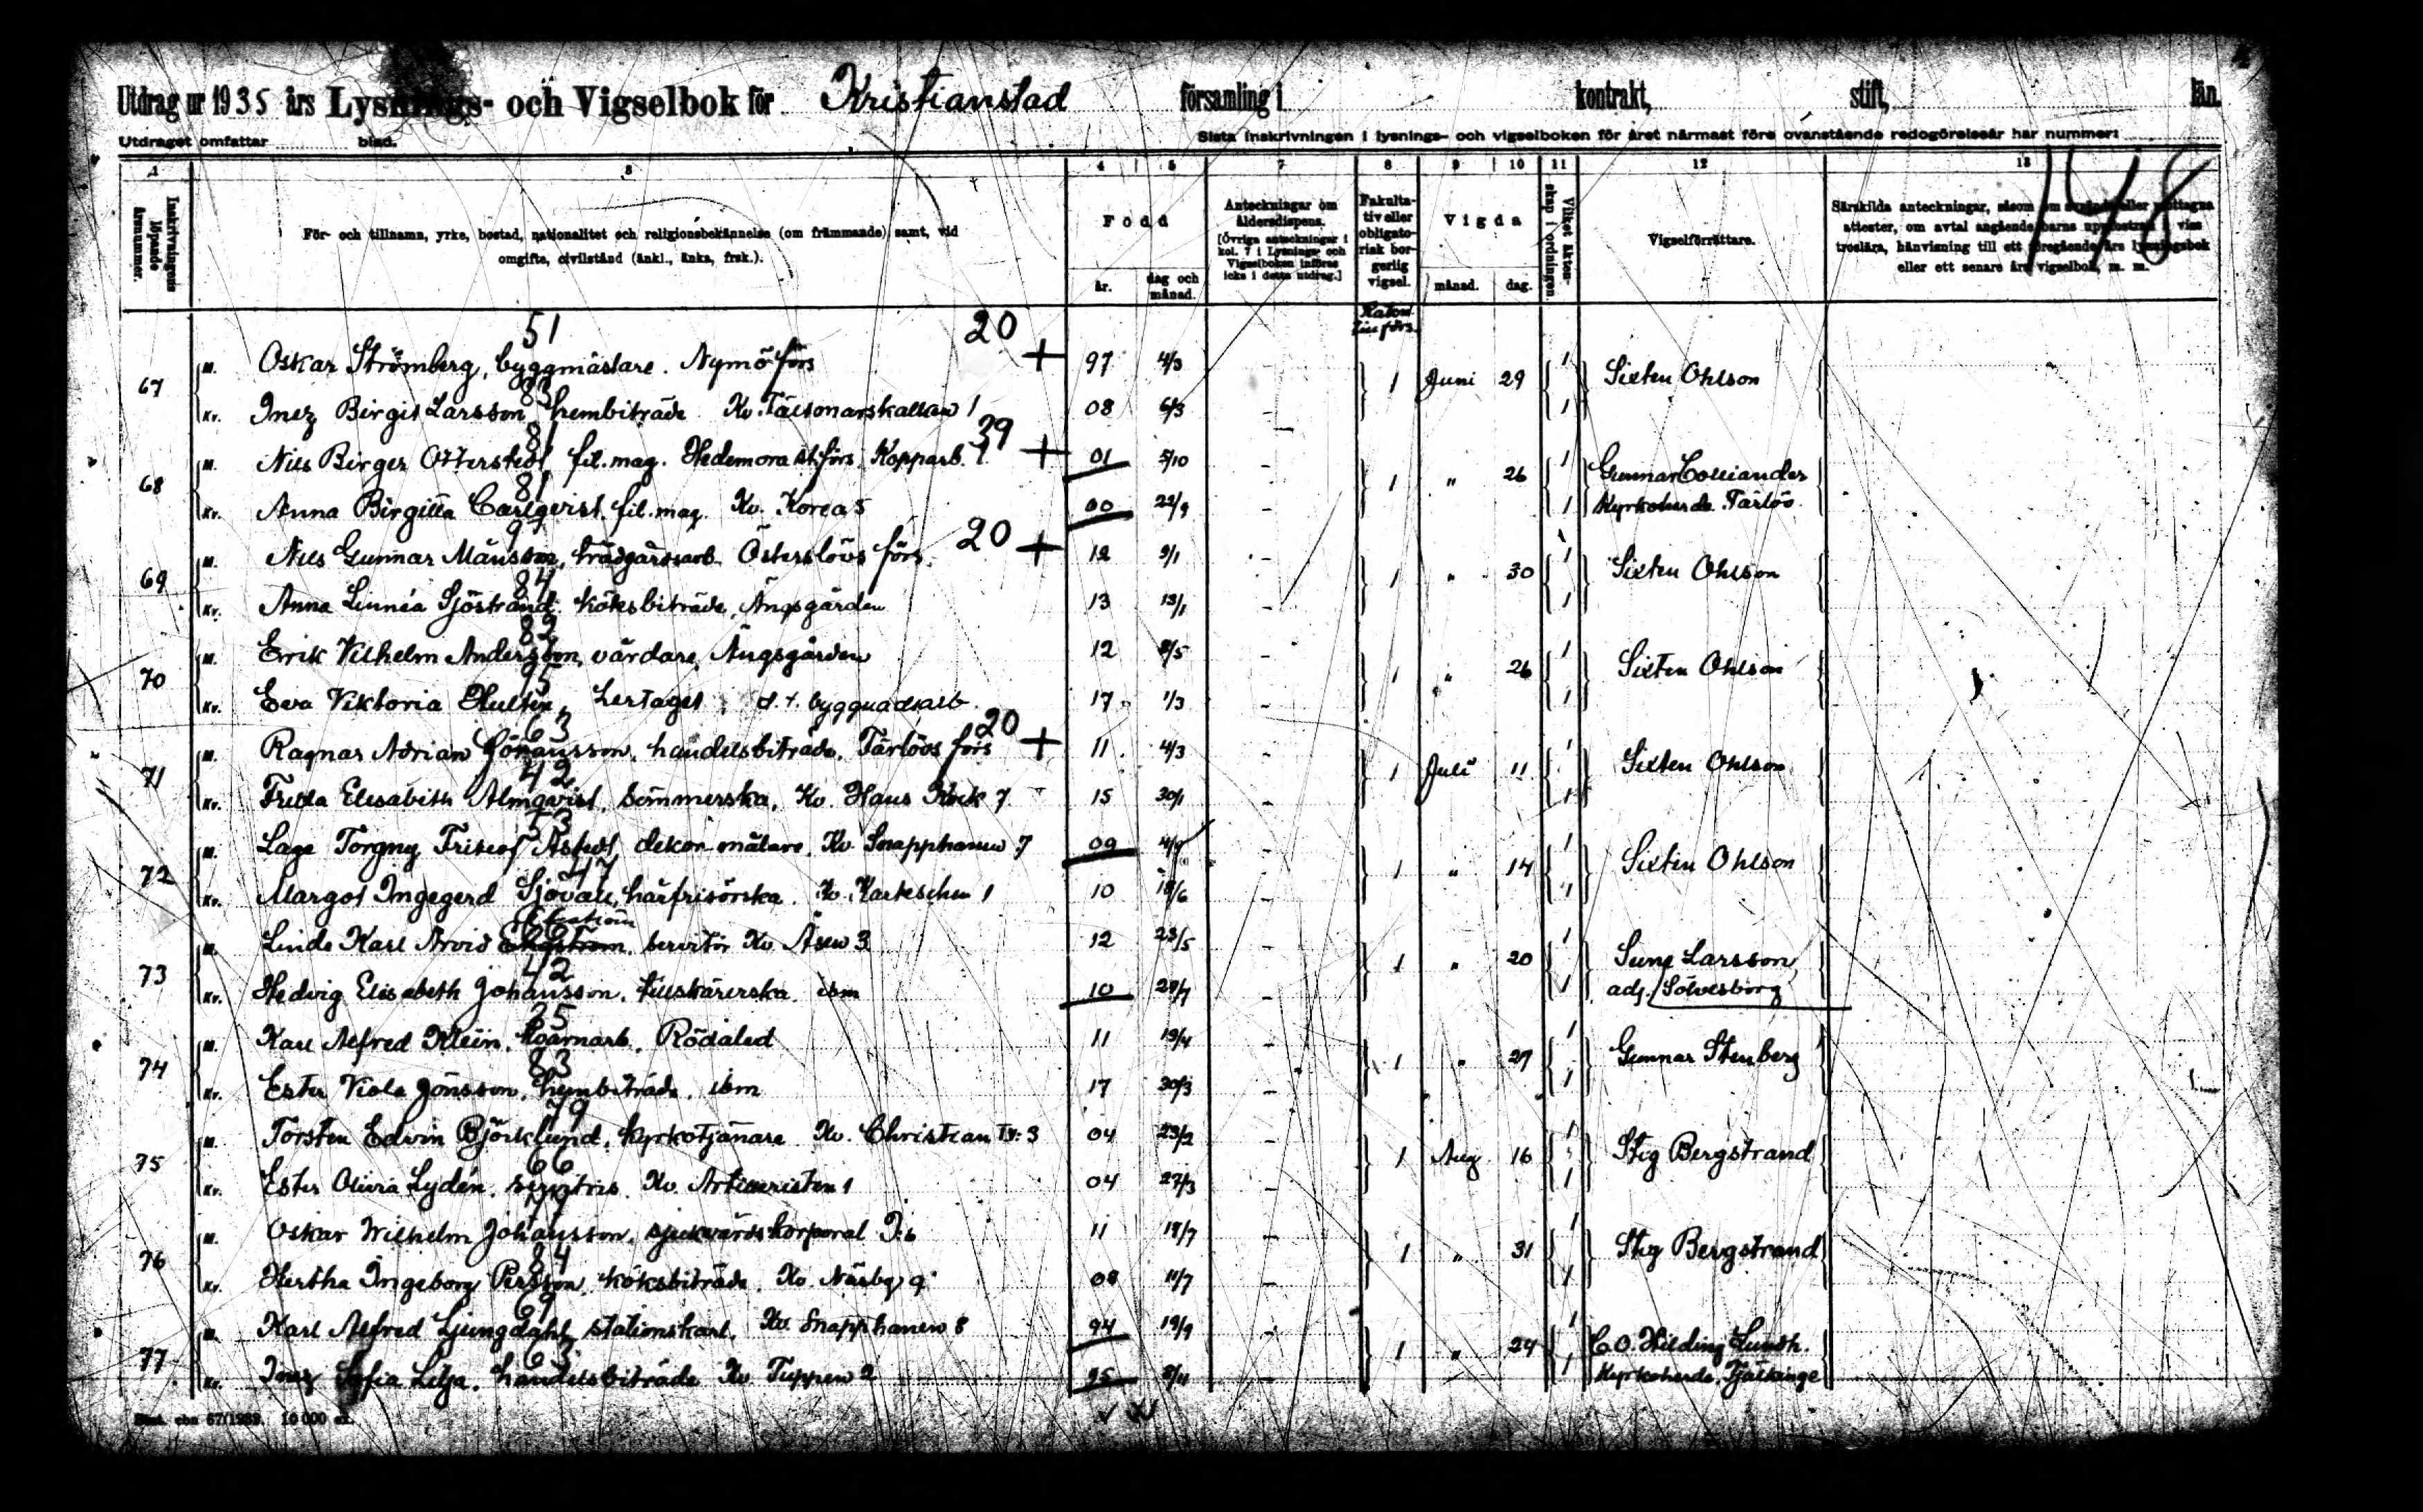 Utdrag ur 1935 års Lysnings- och Vigselbok för Kristianstad församling i kontrakt, stift, län.
Utdraget omfattar blad. Sista inskrivningen i lysnings- och vigselboken för året närmast före ovanstående redogörelseår har nummer:
1 3 4 5 7 8 9 10 11 12 13
148
Inskrivningens löpande årsnummer.
För- och tillnamn, yrke, bostad, nationalitet och religionsbekännelse (om främmande) samt, vid omgifte, civilstånd (änkl., änka, frsk.).
Född
år. dag och månad.
Anteckningar om åldersdispens. [Övriga anteckningar i kol. 7 i Lysnings- och Vigselboken införas icke i detta utdrag.]
Fakultativ eller obligatorisk borgerlig vigsel.
Vigda
månad. dag.
Vilket äktenskap i ordningen.
Vigselförrättare.
Särskilda anteckningar, såsom om avtal angående barns uppfostran i viss troslära, hänvisning till ett föregående års lysningsbok eller ett senare års vigselbok, m. m.
51 20
67 M. Oskar Strömberg, byggmästare. Nymö förs + 97 4/3 - 1 Juni 29 1 Sixten Ohlson
83
Kv. Inez Birgit Larsson, hembiträde Kv. 1 08 6/3 - 1
81 39
68 M. Nils Birger Otterstedt, fil. mag. Hedemora st.förs. Kopparb. l. + 01 5/10 - 1 " 26 1 Gunnar Colliander
81
Kv. Anna Birgitta Carlqvist, fil. mag. Kv. Korea 5 00 22/9 - 1 Kyrkoherde Färlöv
20
69 M. Nils Gunnar Månsson, trädgårdsarb. Österslövs förs. + 12 9/1 - 1 " 30 1 Sixten Ohlson
84
Kv. Anna Linnéa Sjöstrand, köksbiträde, Ängsgården 13 13/1 - 1
82
70 M. Erik Vilhelm Andersson, vårdare, Ängsgården 12 8/5 - 1 " 26 1 Sixten Ohlson
95
Kv. Eva Viktoria Hultin, Lertaget, d. t. byggnadsarb. 17 1/3 - 1
63 20
71 M. Ragnar Adrian Johansson, handelsbiträde, Färlövs förs + 11 4/3 - 1 Juli 11 1 Sixten Ohlson
42
Kv. Frida Elisabeth Almqvist, sömmerska, Kv. Hans Kock 7 15 30/1 - 1
53
72 M. Lage Torgny Fritiof Åstedt, dekor. målare, Kv. Snapphanen 7 09 4/9 - 1 " 14 1 Sixten Ohlson
47
Kv. Margot Ingegerd Sjövall, hårfrisörska. Kv. Karteschen 1 10 18/6 - 1
66
73 M. Linde Karl Arvid Engström, servitör Kv. Åsen 3 12 23/5 - 1 " 20 1 Sune Larsson,
42
Kv. Hedvig Elisabeth Johansson, tillskärerska ibm 10 29/7 - 1 adj. Sölvesborg
25
74 M. Karl Alfred Klein, kvarnarb. Rödaled 11 19/4 - 1 " 27 1 Gunnar Stenberg
83
Kv. Ester Viola Jönsson, hembiträde, ibm 17 30/3 - 1
79
75 M. Torsten Edvin Björklund, kyrkotjänare Kv. Christian IV: 3 04 23/2 - 1 Aug 16 1 Stig Bergstrand
66
Kv. Ester Olivia Lydén, servitris, Kv. Artilleristen 1 04 27/3 - 1
77
76 M. Oskar Wilhelm Johansson, sjukvårdskorporal I:6 11 18/7 - 1 " 31 1 Stig Bergstrand
84
Kv. Hertha Ingeborg Persson, köksbiträde, Kv. Näsby 9 08 11/7 - 1
69
77 M. Karl Alfred Ljungdahl, stationskarl, Kv. Snapphanen 8 94 19/9 - 1 " 24 1 C. O. Hilding Lundh.
63
Kv. Inez Sofia Lilja, handelsbiträde Kv. Tuppen 2 95 2/11 - 1 Kyrkoherde, Fjälkinge
10 000 ex.